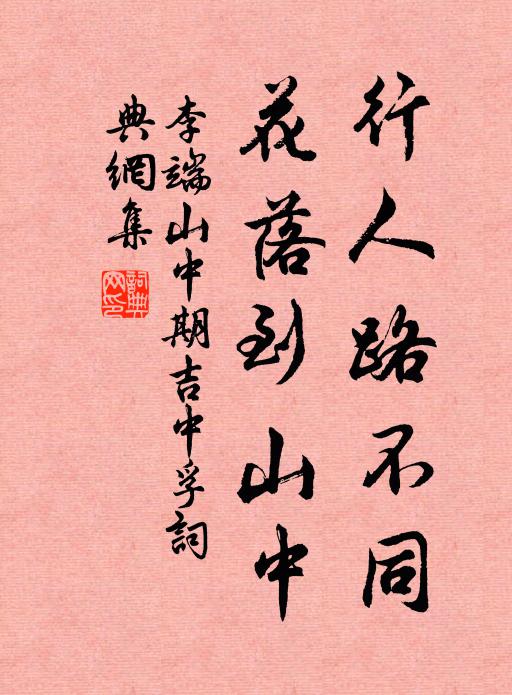 行人路不同
花落到山中
李端山中期吉中孚詞
典網集
詞典
网印